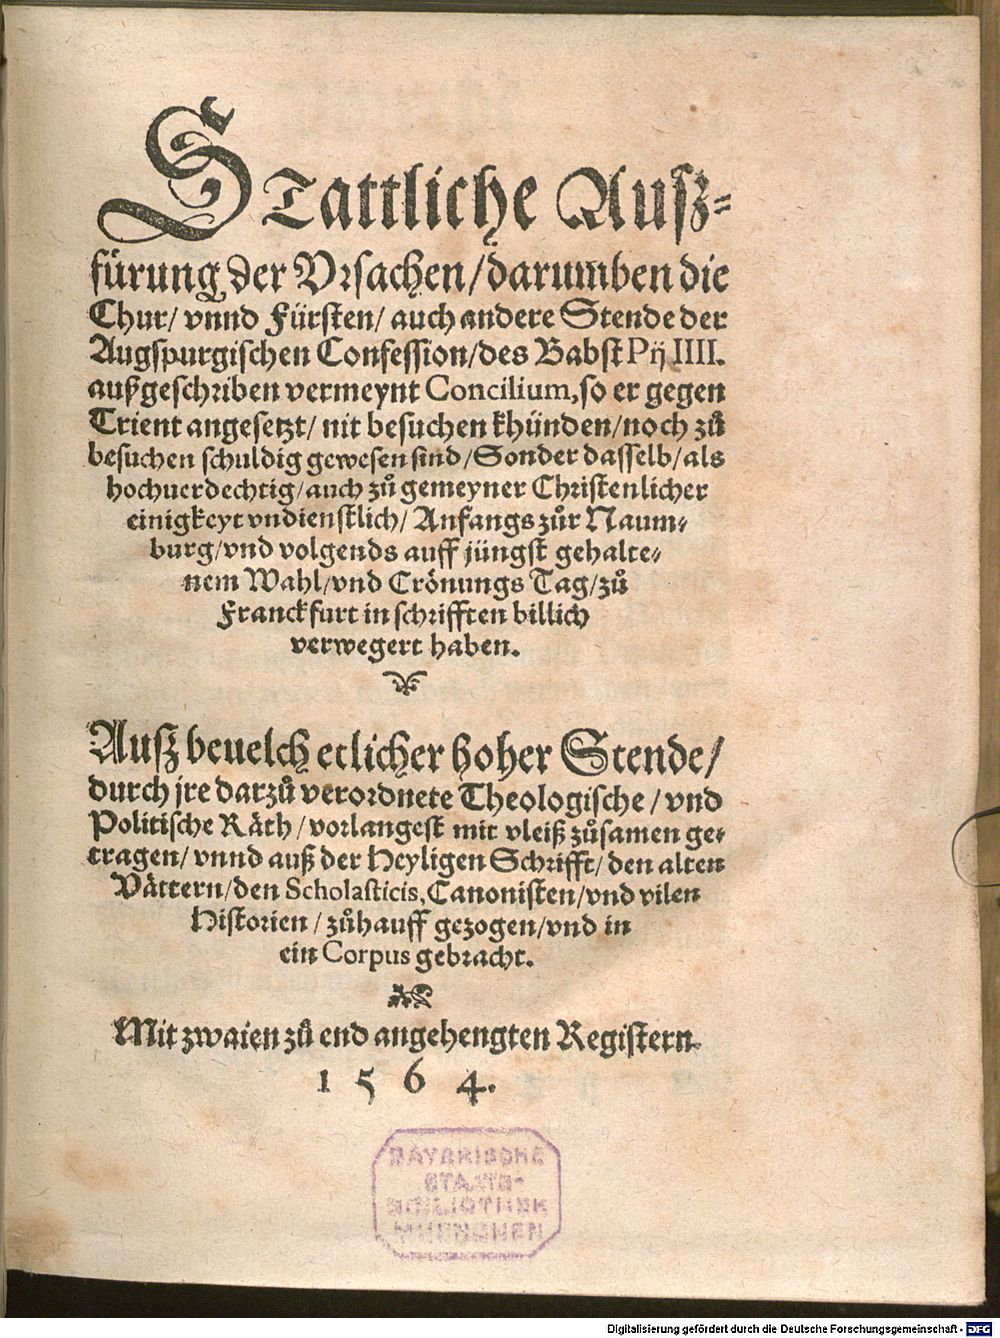 STattliche Ausz-
fürung der Vrsachen/darumben die
Chur/ vnnd Fürsten/ auch andere Stende der
Augspurgischen Confession/des Babst Pij IIII.
außgeschriben vermeynt Concilium, so er gegen
Trient angesetzt/ nit besuchen khünden/noch zů
besuchen schuldig gewesen sind/Sonder dasselb/als
hochuerdechtig/auch zů gemeyner Christenlicher
einigkeyt vndienstlich/ Anfangs zůr Naum-
burg/vnd volgends auff jüngst gehalte-
nem Wahl/vnd Crönungs Tag/zů
Franckfurt in schrifften billich
verwegert haben.
Ausz beuelch etlicher hoher Stende/
durch jre darzů verordnete Theologische/vnd
Politische Räth/vorlangest mit vleiß zůsamen ge-
tragen/ vnnd auß der Heyligen Schrifft/den alten
Vättern/den Scholasticis, Canonisten/vnd vilen
Historien/zůhauff gezogen/vnd in
ein Corpus gebracht.
Mit zwaien zů end angehengten Registern.
1564.
BAYERISCHE
STAATS-
BIBLIOTHEK
MUENCHEN
Digitalisierung gefördert durch die Deutsche Forschungsgemeinschaft - DFG